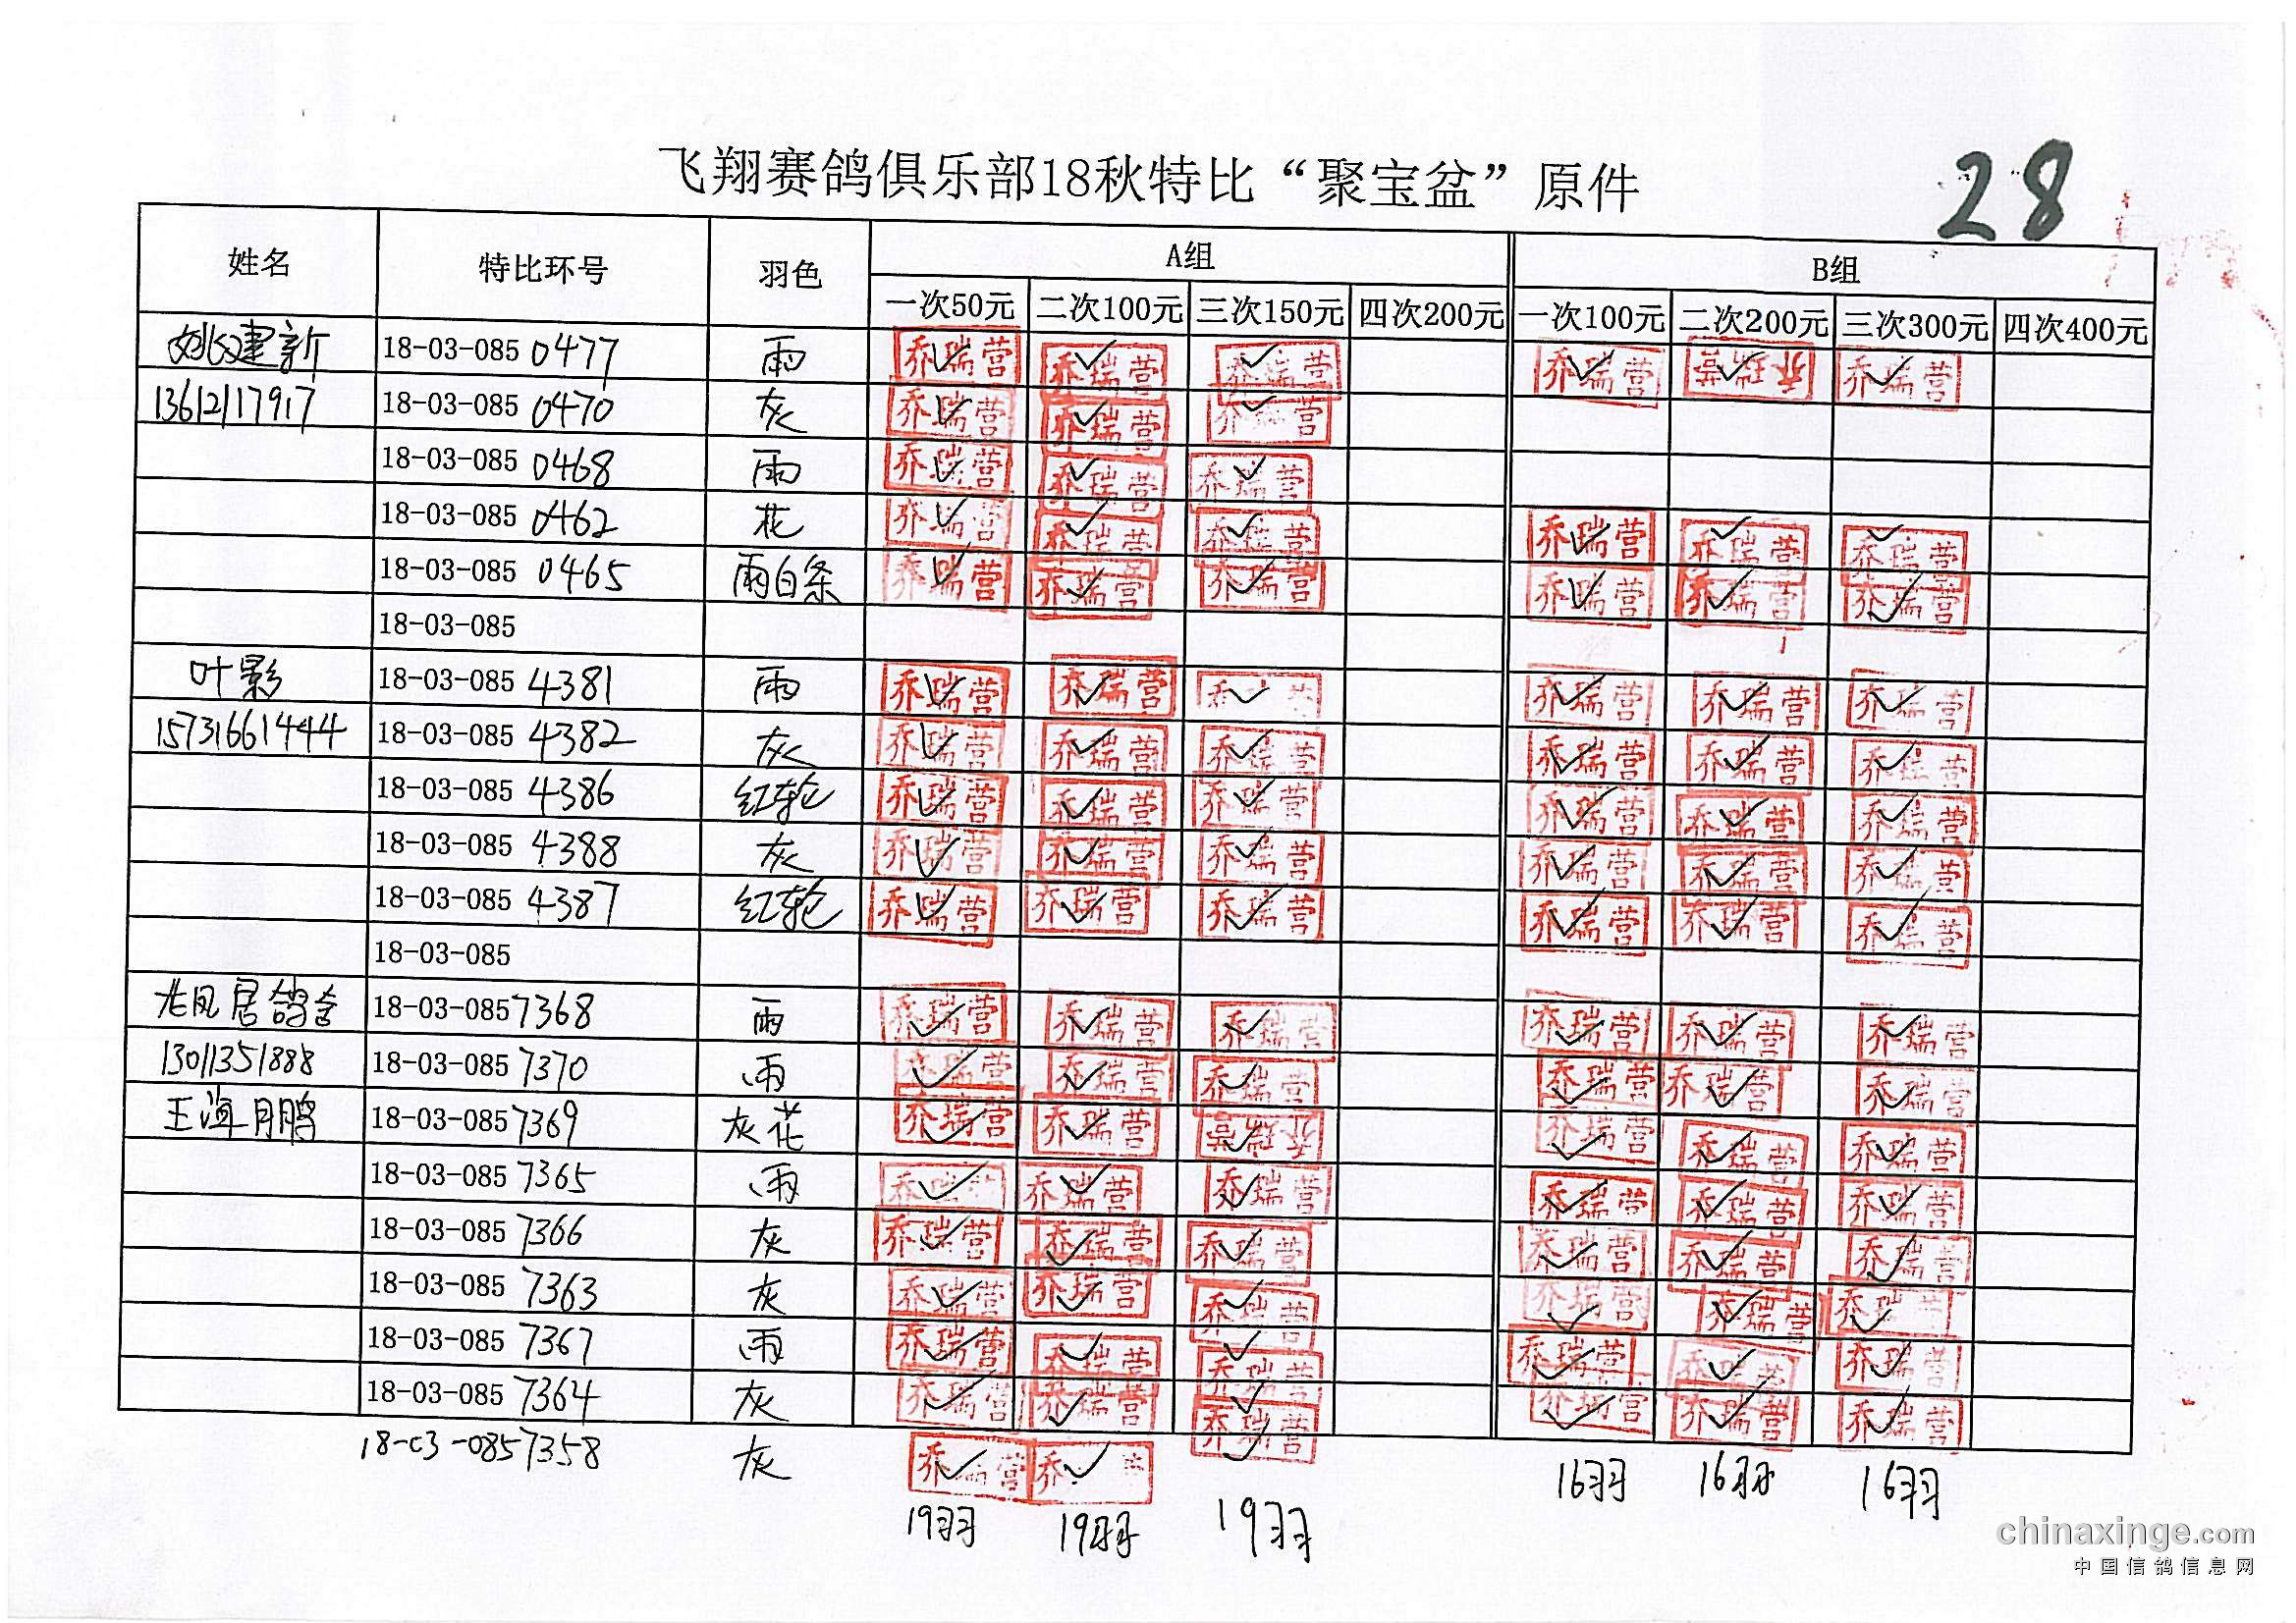 飞翔赛鸽俱乐部18秋特比“聚宝盆”原件
28
姓名 特比环号 羽色 A组 B组
一次50元 二次100元 三次150元 四次200元 一次100元 二次200元 三次300元 四次400元
姚建新 18-03-085 0477 雨 乔瑞营 乔瑞营 乔瑞营 乔瑞营 乔瑞营 乔瑞营
13612117917 18-03-085 0470 灰 乔瑞营 乔瑞营 乔瑞营
18-03-085 0468 雨 乔瑞营 乔瑞营 乔瑞营
18-03-085 0462 花 乔瑞营 乔瑞营 乔瑞营 乔瑞营 乔瑞营 乔瑞营
18-03-085 0465 雨白条 乔瑞营 乔瑞营 乔瑞营 乔瑞营 乔瑞营 乔瑞营
18-03-085
叶影 18-03-085 4381 雨 乔瑞营 乔瑞营 乔瑞营 乔瑞营 乔瑞营 乔瑞营
15731661444 18-03-085 4382 灰 乔瑞营 乔瑞营 乔瑞营 乔瑞营 乔瑞营 乔瑞营
18-03-085 4386 红轮 乔瑞营 乔瑞营 乔瑞营 乔瑞营 乔瑞营 乔瑞营
18-03-085 4388 灰 乔瑞营 乔瑞营 乔瑞营 乔瑞营 乔瑞营 乔瑞营
18-03-085 4387 红轮 乔瑞营 乔瑞营 乔瑞营 乔瑞营 乔瑞营 乔瑞营
18-03-085
居鸽舍 18-03-085 7368 雨 乔瑞营 乔瑞营 乔瑞营 乔瑞营 乔瑞营 乔瑞营
13011351888 18-03-085 7370 雨 乔瑞营 乔瑞营 乔瑞营 乔瑞营 乔瑞营 乔瑞营
王海鹏 18-03-085 7369 灰花 乔瑞营 乔瑞营 乔瑞营 乔瑞营 乔瑞营 乔瑞营
18-03-085 7365 雨 乔瑞营 乔瑞营 乔瑞营 乔瑞营 乔瑞营 乔瑞营
18-03-085 7366 灰 乔瑞营 乔瑞营 乔瑞营 乔瑞营 乔瑞营 乔瑞营
18-03-085 7363 灰 乔瑞营 乔瑞营 乔瑞营 乔瑞营 乔瑞营 乔瑞营
18-03-085 7367 雨 乔瑞营 乔瑞营 乔瑞营 乔瑞营 乔瑞营 乔瑞营
18-03-085 7364 灰 乔瑞营 乔瑞营 乔瑞营 乔瑞营 乔瑞营 乔瑞营
18-03-0857358 灰 乔瑞营 乔
19羽 19羽 19羽 16羽 16羽 16羽
chinaxinge.com
中国信鸽信息网